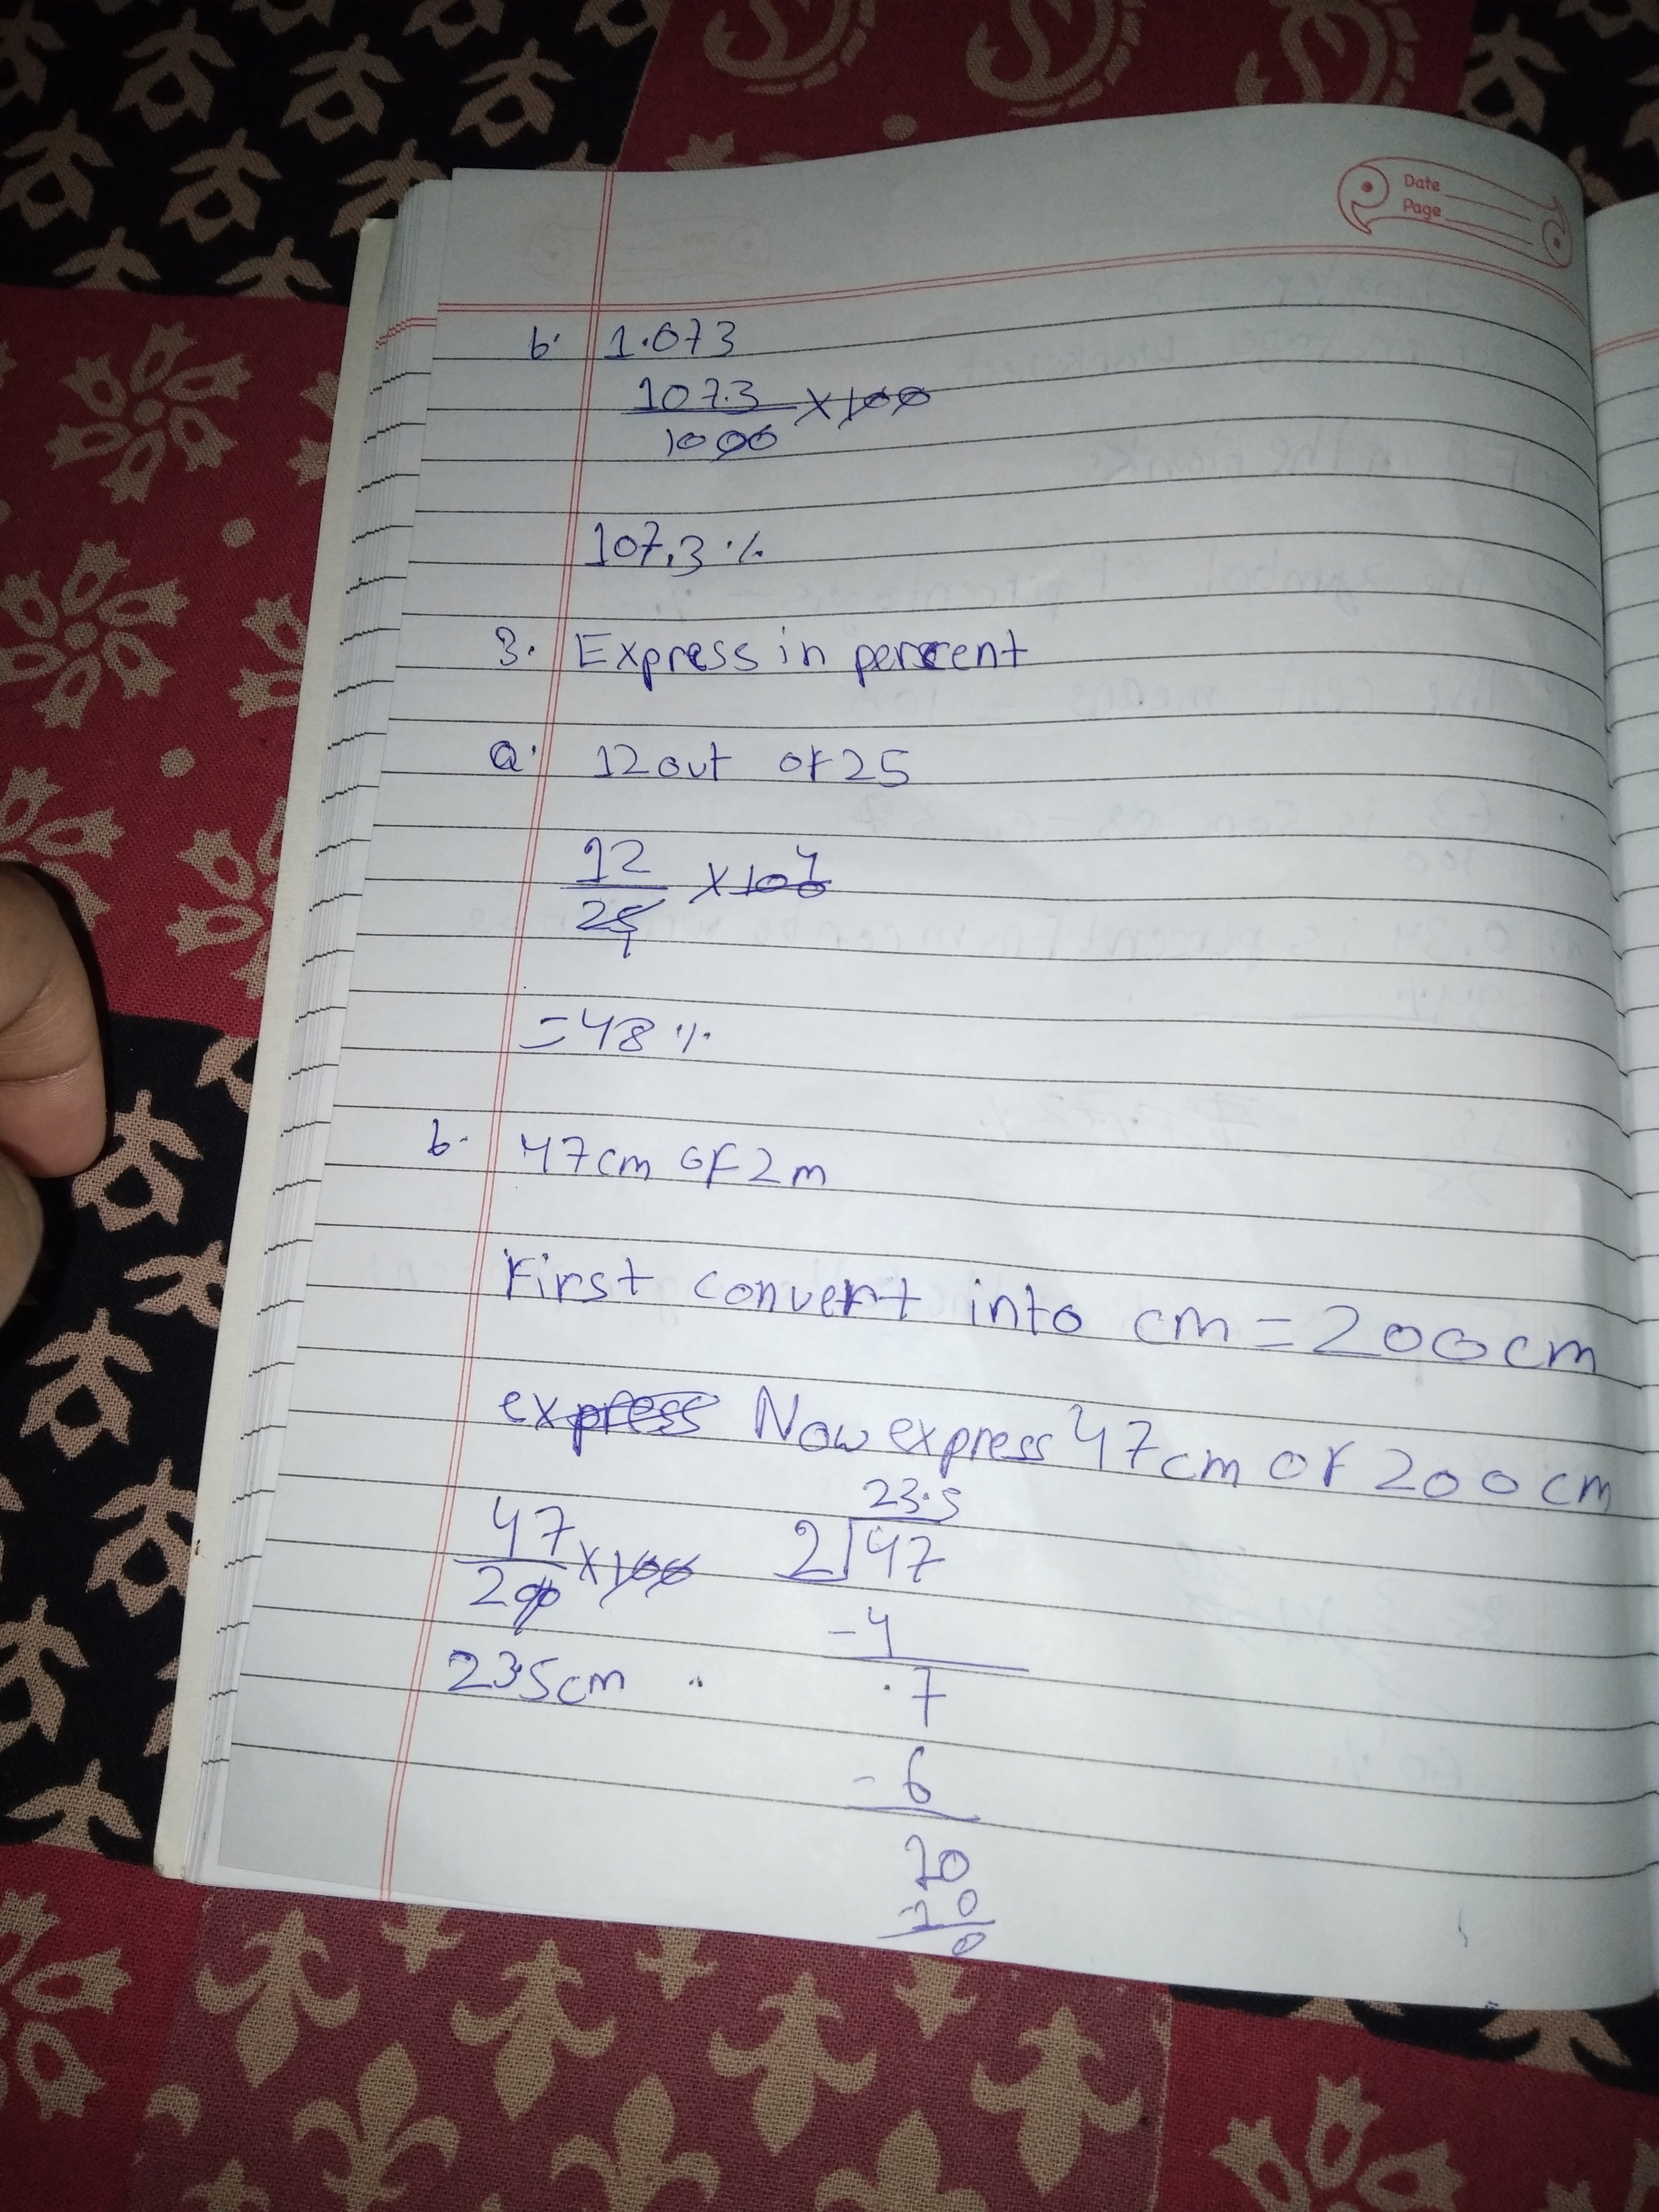 Date
Page
b. 1.073
107.3
1000 × 100
107.3 %
3. Express in percent
a. 12 out of 25
12
25 × 100 4
1
= 48 %
b. 47cm of 2m
First convert into cm = 200cm
express Now express 47cm of 200cm
47
200 × 100
23.5
2 47
- 4
7
- 6
10
- 10
0
23.5cm